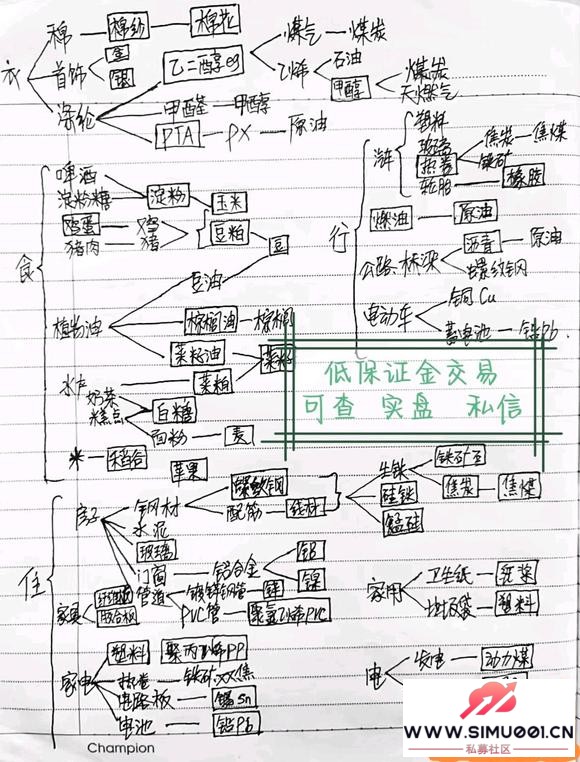 衣
棉 — 棉纱 — 棉花
首饰
金
银
涤纶
乙二醇eg
煤气 — 煤炭
乙烯
石油
甲醇
煤炭
天然气
甲醛 — 甲醇
PTA — PX — 原油
食
啤酒
淀粉糖
淀粉
玉米
鸡蛋 — 鸡
猪肉 — 猪
豆粕
豆
植物油
豆油
棕榈油 — 棕榈
菜籽油
菜籽
水产
菜粕
奶茶
糕点
白糖
面粉 — 麦
米 — 稻谷
苹果
行
塑料
玻璃
热卷
焦炭 — 焦煤
铁矿
轮胎 — 橡胶
燃油 — 原油
公路、桥梁
沥青 — 原油
螺纹钢
电动车
铜Cu
蓄电池 — 铅Pb
低保证金交易
可查 实盘 私信
住
房子
钢材
螺纹钢
配筋 — 线材
生铁
铁矿石
焦炭 — 焦煤
硅铁
锰硅
水泥
玻璃
门窗 — 铝合金
铝
镍
管道
镀锌钢管 — 锌
PVC管 — 聚氯乙烯PVC
家具
纤维板
胶合板
家用
卫生纸 — 纸浆
垃圾袋 — 塑料
家电
塑料 聚丙烯PP
热卷 — 铁矿、双焦
电路板 — 锡Sn
电池 — 铅Pb
电
发电 — 动力煤
WWW.SIMU001.CN
私募社区
Champion